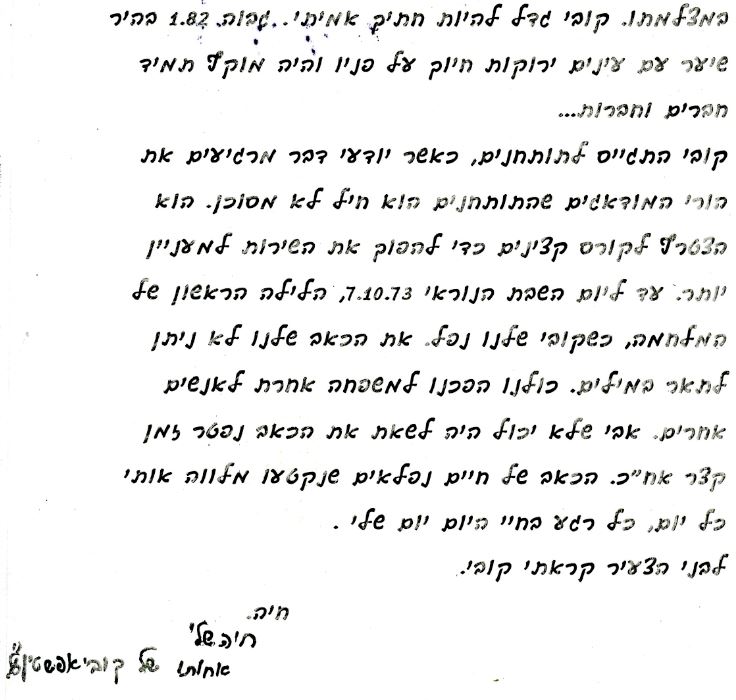 במצלמתו. קובי גדל להיות חתיך אמיתי. גבוה 1.82 בהיר
שיער עם עינים ירוקות חיוך על פניו והיה מוקף תמיד
חברים וחברות...
קובי התגייס לתותחנים, כאשר יודעי דבר מרגיעים את
הורי המודאגים שהתותחנים הוא חיל לא מסוכן. הוא
הצטרף לקורס קצינים כדי להפוך את השירות למעניין
יותר. עד ליום השבת הנוראי 7.10.73, הלילה הראשון של
המלחמה, כשקובי שלנו נפל. את הכאב שלנו לא ניתן
לתאר במילים. כולנו הפכנו למשפחה אחרת לאנשים
אחרים. אבי שלא יכול היה לשאת את הכאב נפטר זמן
קצר אח"כ. הכאב של חיים נפלאים שנקטעו מלווה אותי
כל יום, כל רגע בחיי היום יום שלי .
לבני הצעיר קראתי קובי.
חיה.
חיה שלי
אחותו של קובי אפשטין ז"ל